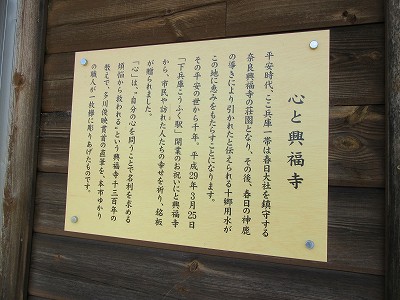 心と興福寺
平安時代、ここ兵庫一帯は春日大社を鎮守する
奈良興福寺の荘園となり、その後、春日の神鹿
の導きにより引かれたと伝えられる十郷用水が
この地に恵みをもたらすことになります。
その平安の世から千年。平成29年3月25日
「下兵庫こうふく駅」開業のお祝いにと興福寺
から、市民や訪れた人たちの幸せを祈り、銘板
が贈られました。
『心』は、“自分の心を問うことで名利を求める
煩悩から救われる”という興福寺千三百年の
教えで、多川俊映貫首の直筆を、本市ゆかり
の職人が一枚欅に彫りあげたものです。